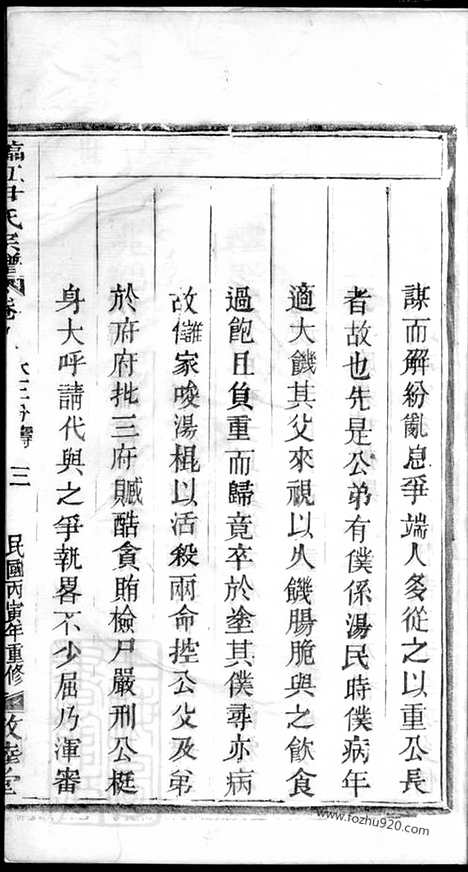 謀而解紛亂息爭端人多從之以重公長
者故也先是公弟有僕係湯民時僕病年
適大饑其父來視以久饑腸脆與之飲食
過飽且負重而歸竟卒於塗其僕尋亦病
故讎家唆湯棍以活殺兩命控公父及弟
於府府批三府贓酷貪賄檢尸嚴刑公挺
身大呼請代與之爭執畧不少屈乃渾審
尹氏宗譜
三
民國丙寅年重修
敦睦堂
www.fozhu920.com